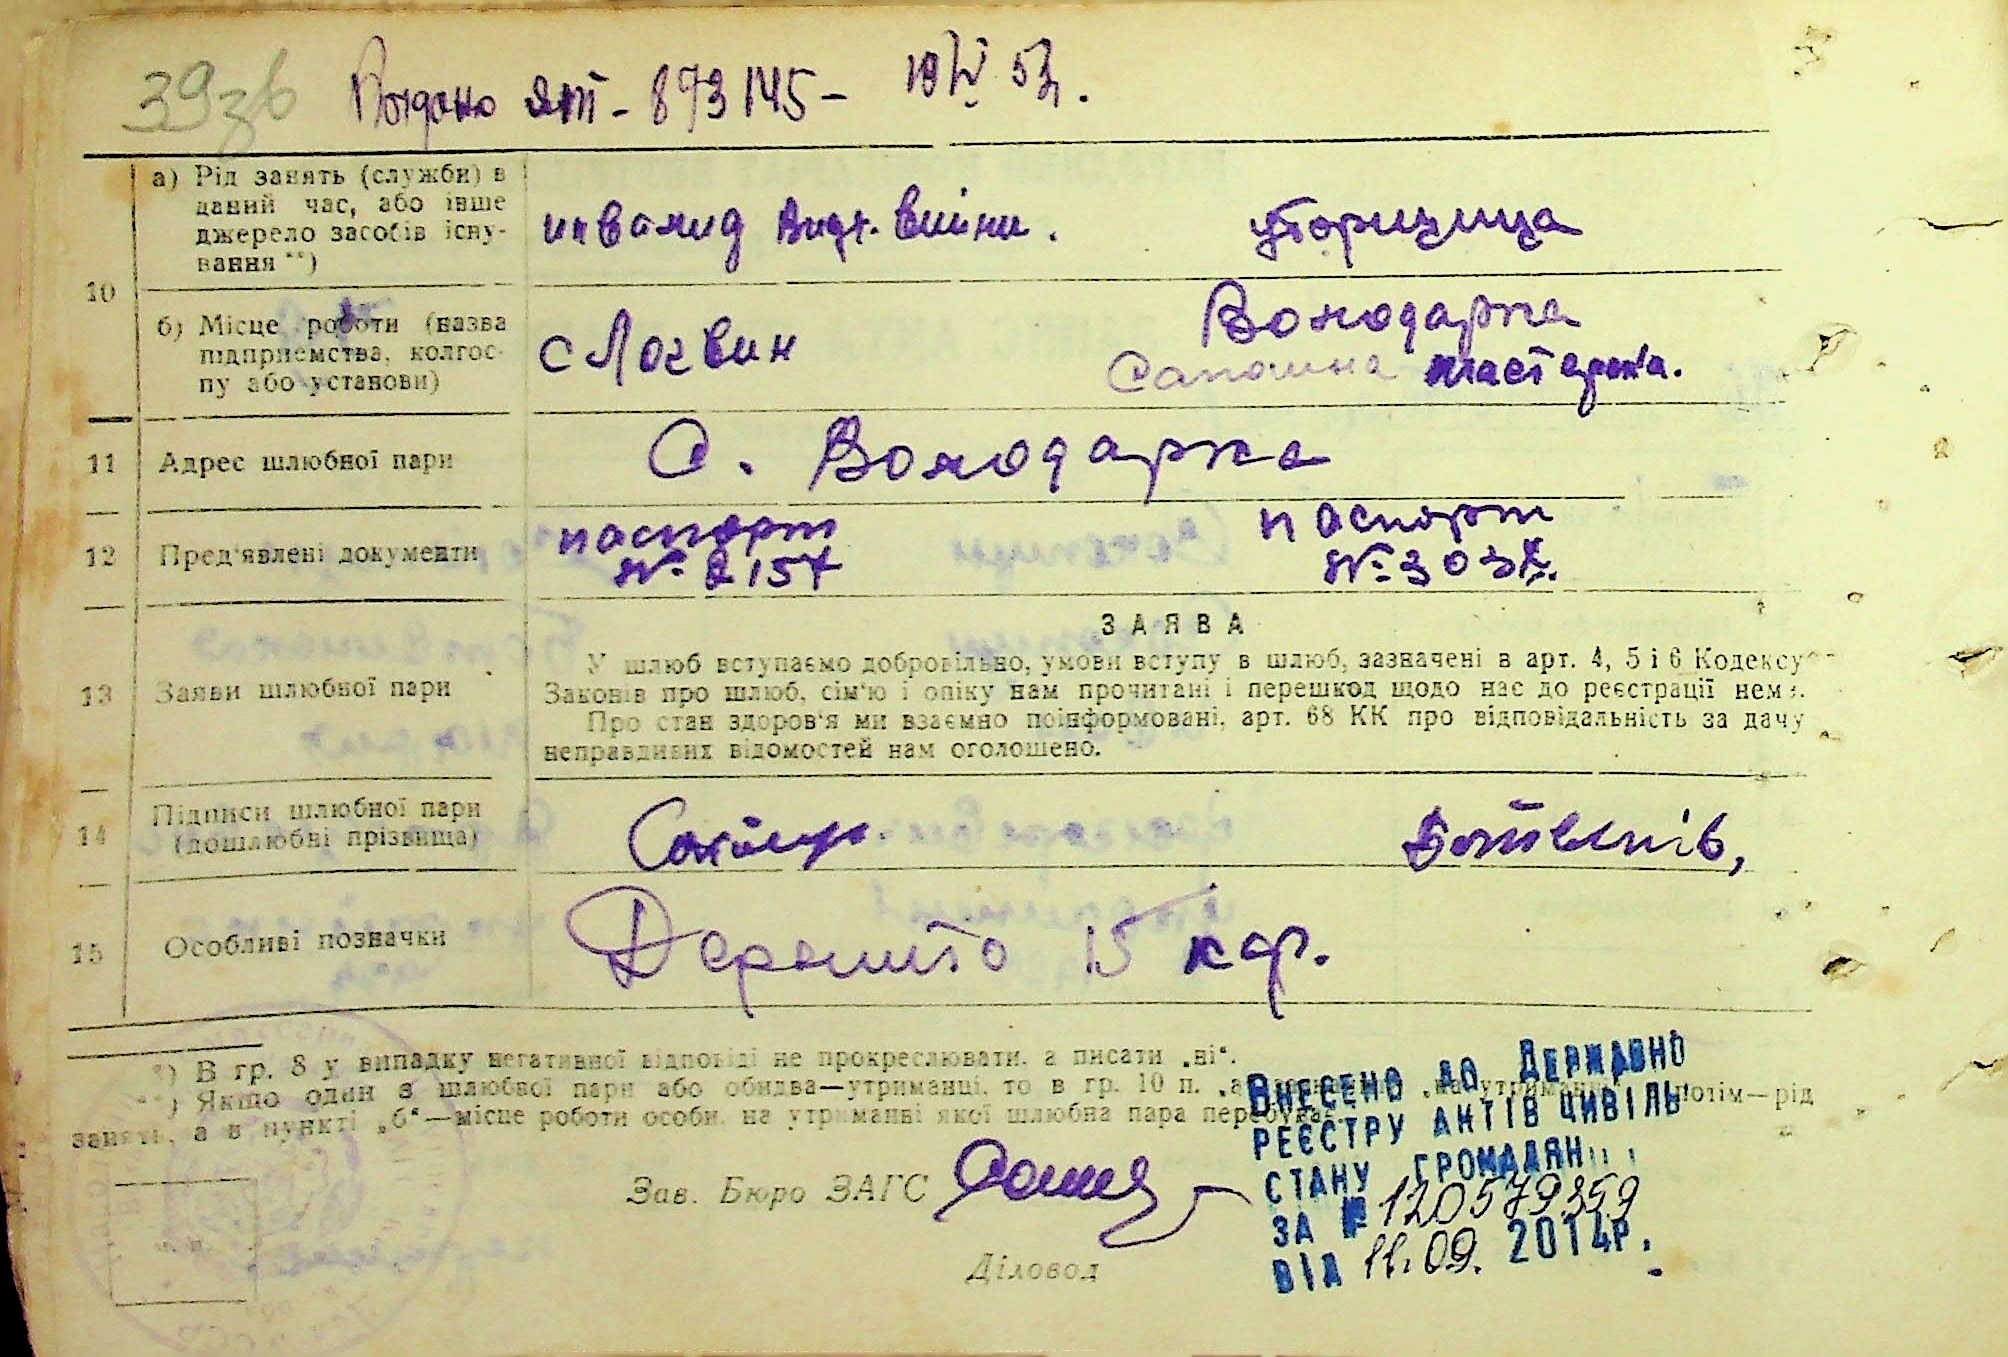 39зв
Видано ЯТ - 873145 - 10/V 53.
а) Рід занять (служби) в
даний час, або інше
джерело засобів існу-
вання **)
инвалид Видч. Війни.
уборщица
10
б) Місце роботи (назва
підприємства, колгос-
пу або установи)
с Логвин
Володарка
Сапожна мастерска.
11 Адрес шлюбної пари
С. Володарка
12 Пред'явлені документи
паспорт
№ 2157
паспорт
ЗАЯВА
13 Заяви шлюбної пари
У шлюб вступаємо добровільно, умови вступу в шлюб, зазначені в арт. 4, 5 і 6 Кодексу
Законів про шлюб, сім'ю і опіку нам прочитані і перешкод щодо нас до реєстрації нема.
Про стан здоров'я ми взаємно поінформовані, арт. 68 КК про відповідальність за дачу
неправдивих відомостей нам оголошено.
14 Підписи шлюбної пари
(дошлюбні прізвища)
15 Особливі позначки
15 кар.
*) В гр. 8 у випадку негативної відповіді не прокреслювати, а писати „ні“.
**) Якщо один з шлюбної пари або обидва—утриманці, то в гр. 10 п. „а“ на утриманні потім—рід
занять, а в пункті „б“—місце роботи особи, на утриманні якої шлюбна пара перебуває.
Зав. Бюро ЗАГС
Діловод
ВНЕСЕНО ДО ДЕРЖАВНО
РЕЄСТРУ АКТІВ ЦИВІЛЬ
СТАНУ ГРОМАДЯН
ЗА № 120579359
ВІД 11.09. 2014р.